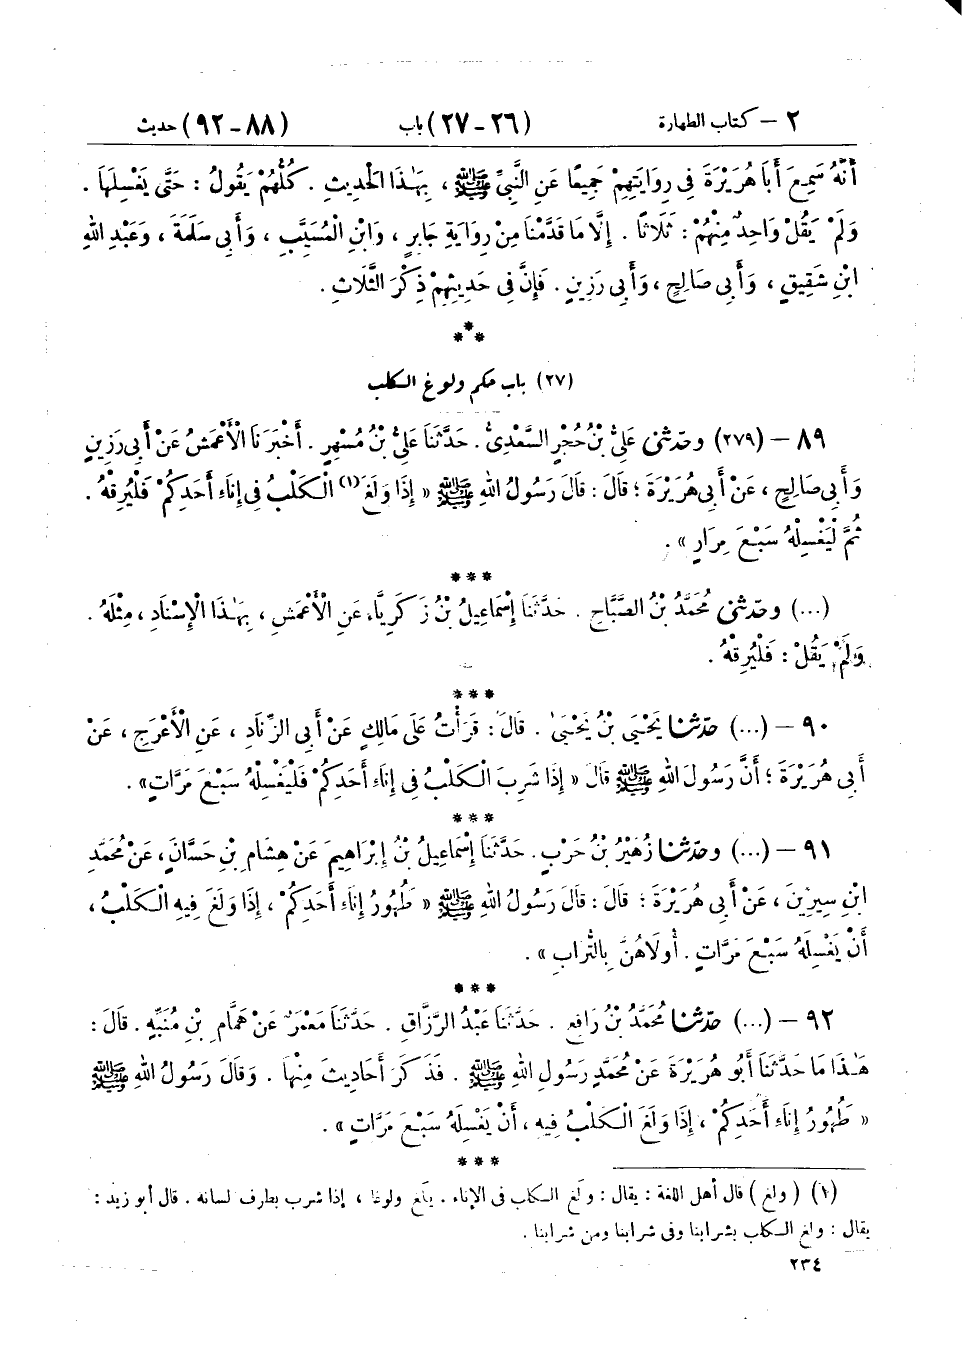 ٢ – كتاب الطهارة (٢٦-٢٧) باب (٨٨-٩٢) حديث
أَنَّهُ سَمِعَ أَبَا هُرَيْرَةَ فِي رِوَايَتِهِمْ جَمِيعًا عَنِ النَّبِيِّ ﷺ ، بِهَـٰذَا الْحَدِيثِ . كُلُّهُمْ يَقُولُ : حَتَّى يَغْسِلَهَا .
وَلَمْ يَقُلْ وَاحِدٌ مِنْهُمْ : ثَلَاثًا . إِلَّا مَا قَدَّمْنَا مِنْ رِوَايَةِ جَابِرٍ ، وَابْنِ الْمُسَيَّبِ ، وَأَبِي سَلَمَةَ ، وَعَبْدِ اللهِ
ابْنِ شَقِيقٍ ، وَأَبِي صَالِحٍ ، وَأَبِي رَزِينٍ . فَإِنَّ فِي حَدِيثِهِمْ ذِكْرَ الثَّلَاثِ .
***
(٢٧) باب حكم ولوغ الكلب
٨٩ – (٢٧٩) وحَدّثنى عَلِيُّ بْنُ حُجْرٍ السَّعْدِيُّ . حَدَّثَنَا عَلِيُّ بْنُ مُسْهِرٍ . أَخْبَرَنَا الْأَعْمَشُ عَنْ أَبِي رَزِينٍ
وَأَبِي صَالِحٍ ، عَنْ أَبِي هُرَيْرَةَ ؛ قَالَ : قَالَ رَسُولُ اللهِ ﷺ « إِذَا وَلَغَ(١) الْكَلْبُ فِي إِنَاءِ أَحَدِكُمْ فَلْيُرِقْهُ .
ثُمَّ لْيَغْسِلْهُ سَبْعَ مِرَارٍ » .
***
(...) وحَدّثنى مُحَمَّدُ بْنُ الصَّبَّاحِ . حَدَّثَنَا إِسْمَاعِيلُ بْنُ زَكَرِيَّاءَ عَنِ الْأَعْمَشِ ، بِهَـٰذَا الْإِسْنَادِ ، مِثْلَهُ .
وَلَمْ يَقُلْ : فَلْيُرِقْهُ .
***
٩٠ – (...) حَدّثنا يَحْيَى بْنُ يَحْيَىٰ . قَالَ : قَرَأْتُ عَلَى مَالِكٍ عَنْ أَبِي الزِّنَادِ ، عَنِ الْأَعْرَجِ ، عَنْ
أَبِي هُرَيْرَةَ ؛ أَنَّ رَسُولَ اللهِ ﷺ قَالَ « إِذَا شَرِبَ الْكَلْبُ فِي إِنَاءِ أَحَدِكُمْ فَلْيَغْسِلْهُ سَبْعَ مَرَّاتٍ» .
***
٩١ – (...) وحَدّثنا زُهَيْرُ بْنُ حَرْبٍ . حَدَّثَنَا إِسْمَاعِيلُ بْنُ إِبْرَاهِيمَ عَنْ هِشَامِ بْنِ حَسَّانَ ، عَنْ مُحَمَّدِ
ابْنِ سِيرِينَ ، عَنْ أَبِي هُرَيْرَةَ ؛ قَالَ : قَالَ رَسُولُ اللهِ ﷺ « طُهُورُ إِنَاءِ أَحَدِكُمْ ، إِذَا وَلَغَ فِيهِ الْكَلْبُ ،
أَنْ يَغْسِلَهُ سَبْعَ مَرَّاتٍ . أُولَاهُنَّ بِالتُّرَابِ » .
***
٩٢ – (...) حَدّثنا مُحَمَّدُ بْنُ رَافِعٍ . حَدَّثَنَا عَبْدُ الرَّزَّاقِ . حَدَّثَنَا مَعْمَرٌ عَنْ هَمَّامِ بْنِ مُنَبِّهٍ . قَالَ :
هَـٰذَا مَا حَدَّثَنَا أَبُو هُرَيْرَةَ عَنْ مُحَمَّدٍ رَسُولِ اللهِ ﷺ . فَذَكَرَ أَحَادِيثَ مِنْهَا . وَقَالَ رَسُولُ اللهِ ﷺ
« طُهُورُ إِنَاءِ أَحَدِكُمْ ، إِذَا وَلَغَ الْكَلْبُ فِيهِ ، أَنْ يَغْسِلَهُ سَبْعَ مَرَّاتٍ » .
***
(١) ( ولغ ) قال أهل اللغة : يقال : ولَغ الكلب فى الإناء . يلَغ ولوغا ، إذا شرب بطرف لسانه . قال أبو زيد :
يقال : ولغ الكلب بشرابنا وفى شرابنا ومن شرابنا .
٢٣٤